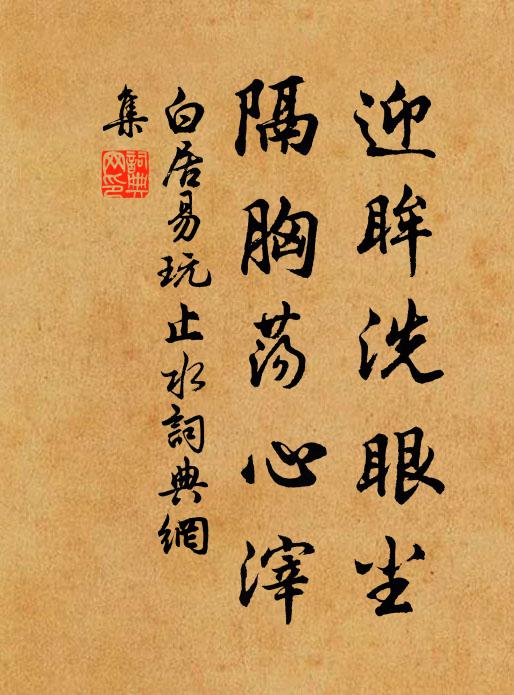 迎眸洗眼尘
隔胸荡心滓
白居易玩止水詞典網
集
詞典网印